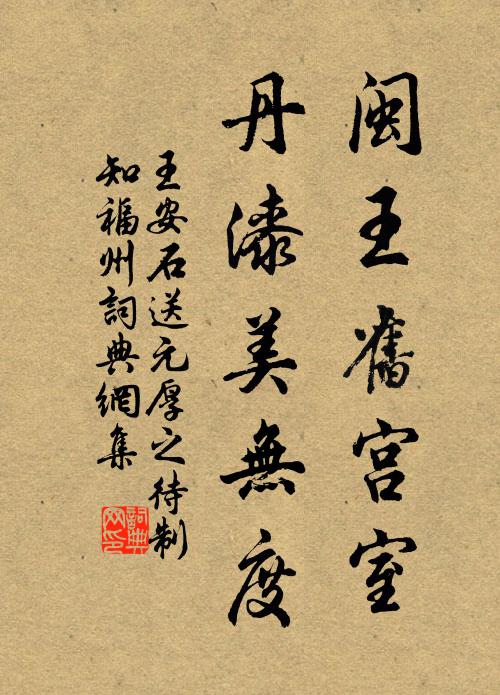 閩王舊宫室
丹漆美無度
王安石送元厚之待制
知福州詞典網集
詞典
网印